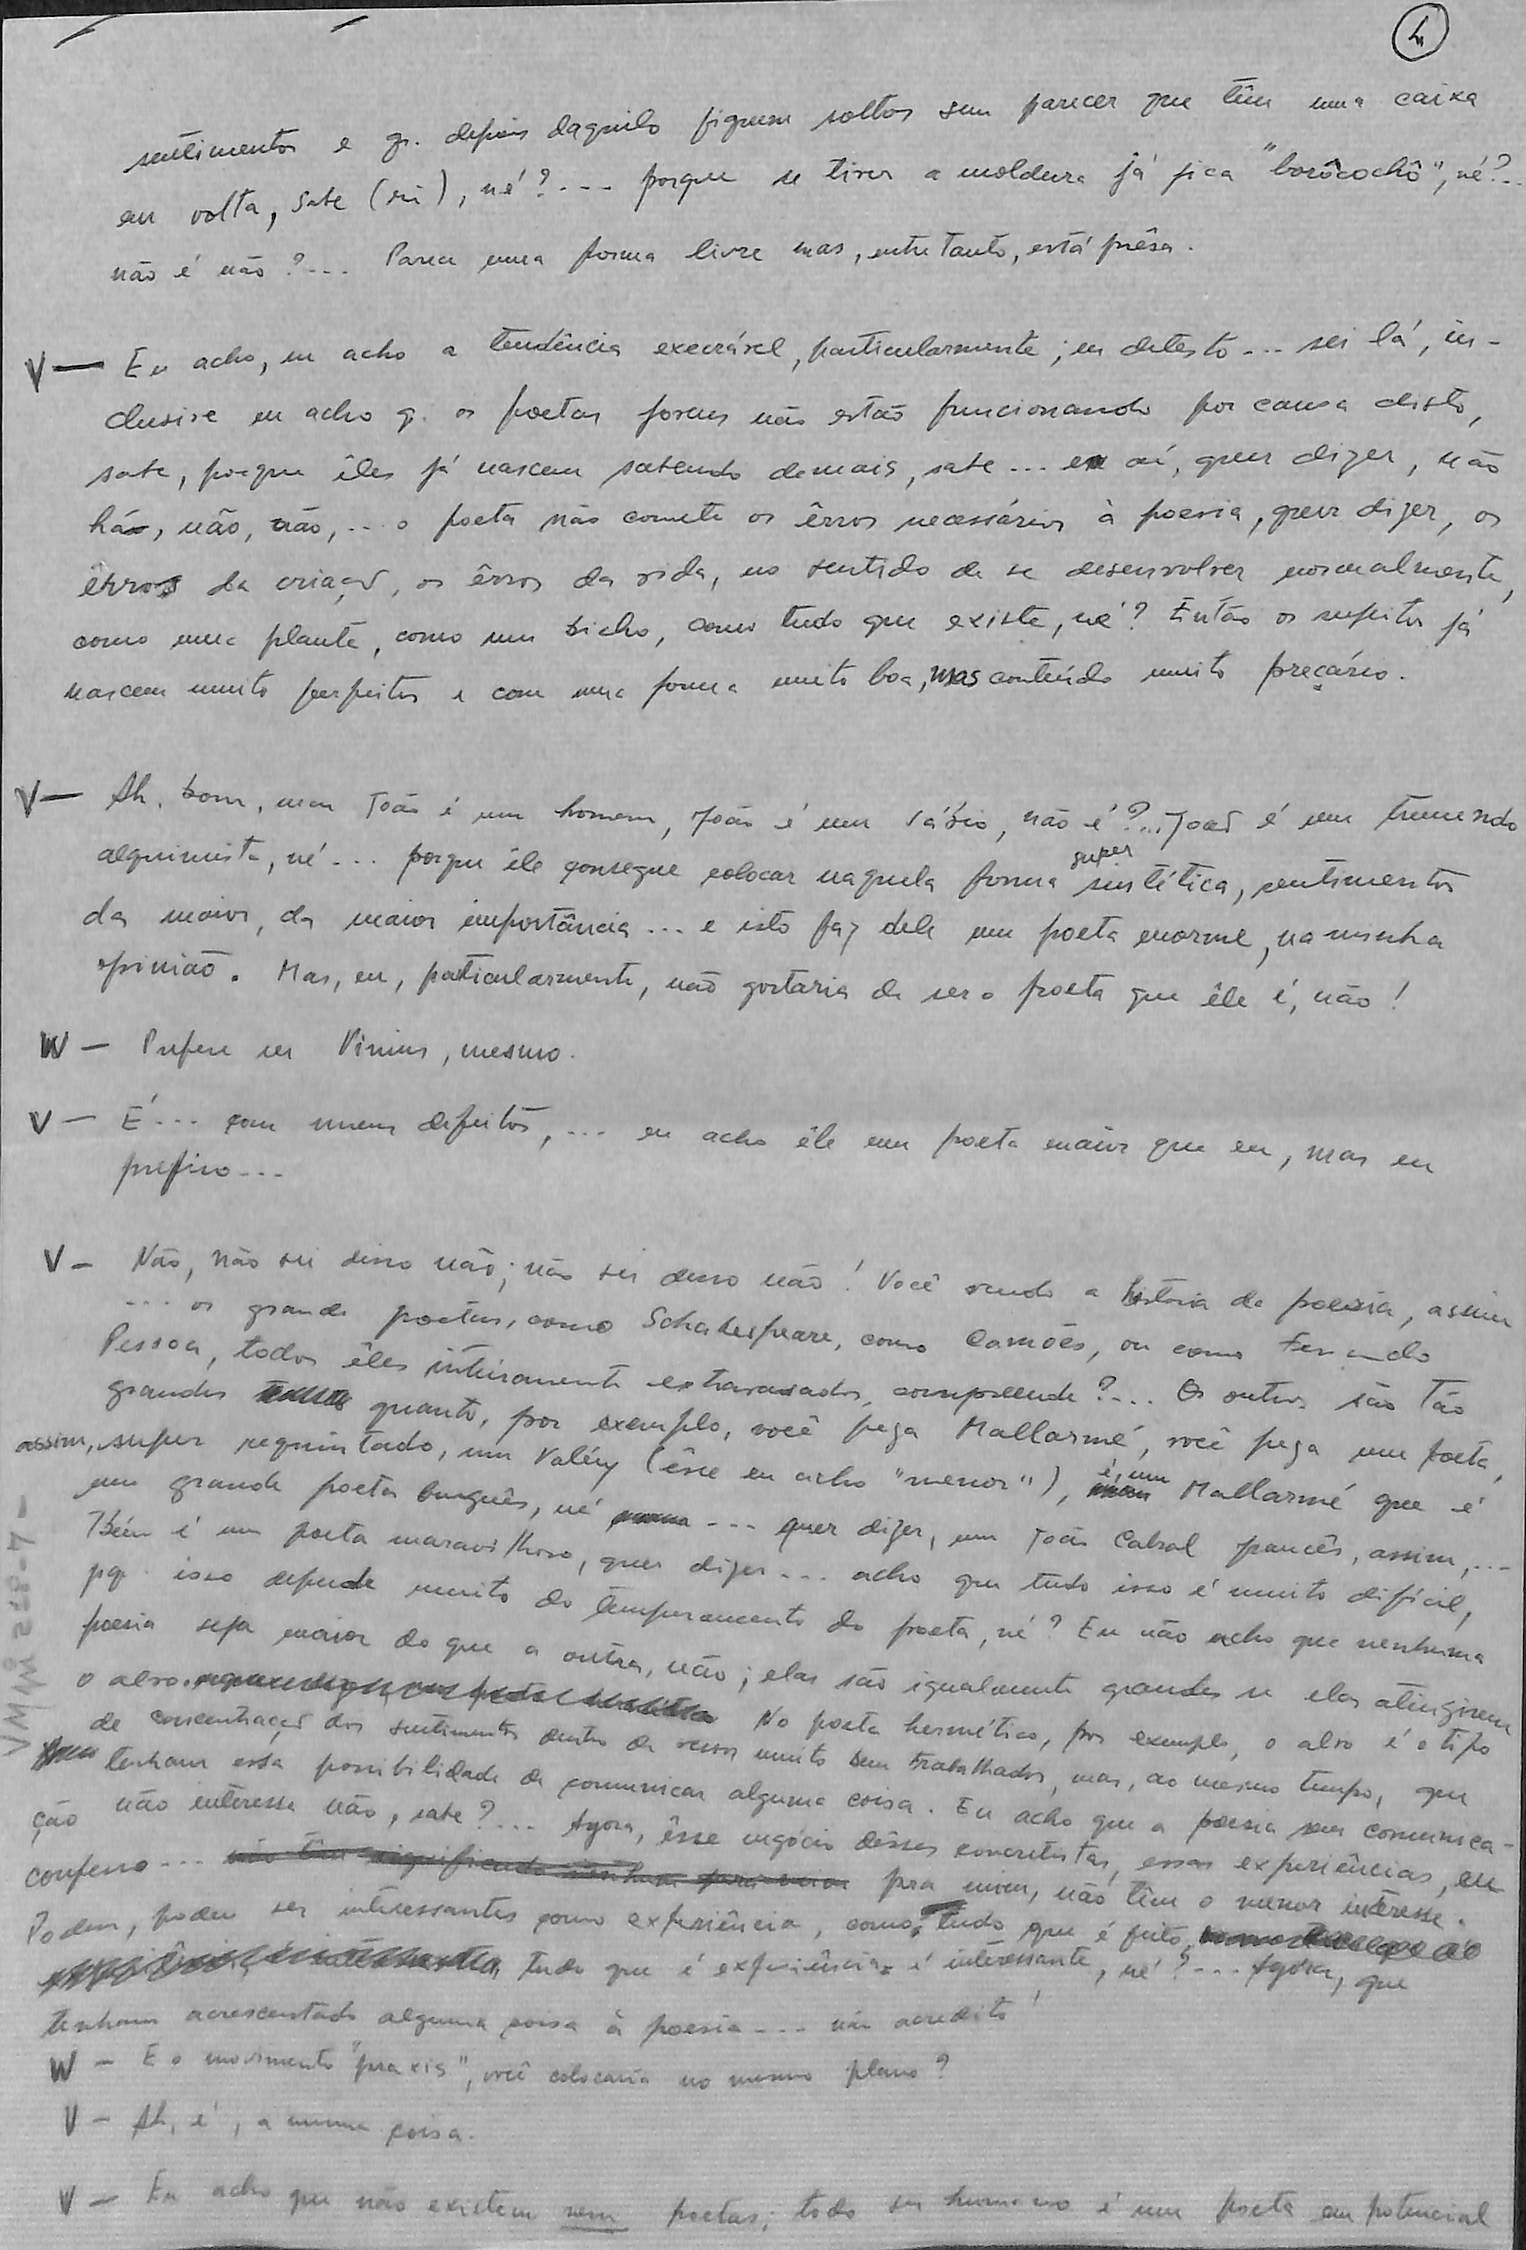 4
sentimentos e q. depois daquilo fiquem soltos sem parecer que têm uma caixa
em volta, sabe (ri), né?... porque se tirar a moldura já fica "borôcochô", né?...
não é não?... Parece uma forma livre mas, entretanto, está prêsa.
V — Eu acho, eu acho a tendência execrável, particularmente; eu detesto... sei lá, in-
clusive eu acho q. os poetas jovens não estão funcionando por causa disto,
sabe, porque êles já nascem sabendo demais, sabe... aí, quer dizer, não
há, não, não, ... o poeta não comete os êrros necessários à poesia, quer dizer, os
êrros da criação, os êrros da vida, no sentido de se desenvolver normalmente,
como uma planta, como um bicho, como tudo que existe, né? Então os sujeitos já
nascem muito perfeitos e com uma forma muito boa, mas conteúdo muito precário.
V — Ah, bom, mas João é um homem, João é um sábio, não é?... João é um tremendo
alquimista, né... porque êle consegue colocar naquela forma super sintética, sentimentos
da maior, da maior importância... e isto faz dele um poeta enorme, na minha
opinião. Mas, eu, particularmente, não gostaria de ser o poeta que êle é, não!
W — Prefere ser Vinius, mesmo.
V — É... com meus defeitos, ... eu acho êle um poeta maior que eu, mas eu
prefiro...
V — Não, não sei disso não; não sei disso não! Você vendo a história da poesia, assim
... os grandes poetas, como Schakespeare, como Camões, ou como Fernando
Pessoa, todos êles inteiramente extravasados, compreende?... Os outros são tão
grandes quanto, por exemplo, você pega Mallarmé, você pega um poeta,
assim, super requintado, um Valéry (êsse eu acho "menor"), é, um Mallarmé que é
um grande poeta burguês, né ... quer dizer, um João Cabral francês, assim, ...
Tbém é um poeta maravilhoso, quer dizer... acho que tudo isso é muito difícil,
pq. isso depende muito do temperamento do poeta, né? Eu não acho que nenhuma
poesia seja maior do que a outra, não; elas são igualmente grandes se elas atingirem
o alvo. No poeta hermético, por exemplo, o alvo é o tipo
de concentração dos sentimentos dentro de versos muito bem trabalhados, mas, ao mesmo tempo, que
tenham essa possibilidade de comunicar alguma coisa. Eu acho que a poesia sem comunica-
ção não interessa não, sabe?... Agora, êsse negócio dêsses concretistas, essas experiências, eu
confesso... pra mim, não têm o menor interêsse.
Podem, podem ser interessantes como experiência, como tudo que é feito,
tudo que é experiência é interessante, né?... Agora, que
tenham acrescentado alguma coisa à poesia... não acredito!
W — E o movimento "praxis", você colocaria no mesmo plano?
V — Ah, é, a mesma coisa.
V — Eu acho que não existem nem poetas; todo ser humano é um poeta em potencial